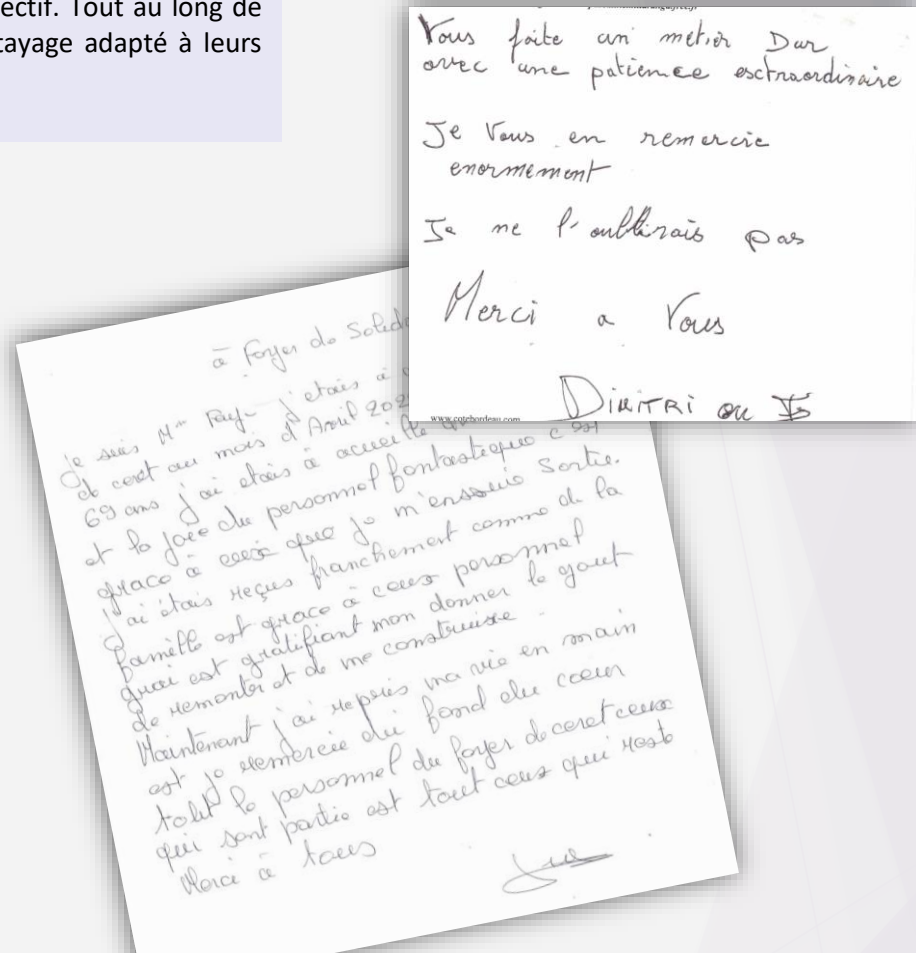 ectif. Tout au long de
tayage adapté à leurs
Vous faite un métier Dur
avec une patience esctraordinaire
Je Vous en remercie
enormement
Je ne l'oublirais pas
Merci a Vous
DIMITRI ou
www.cotebordeau.com
à Foyer do Solida
Je suis Mme j'etais à
de ceret au mois d'Avril 202
69 ans j'ai etais à accueille
et la joee du personnel fantastique c'est
grace à ceux que je m'ensuis Sortie.
J'ai étais reçus franchement comme de la
famille est grace à ceux personnel
qui est gratifiant mon donner le gout
de remonter et de me construire.
Maintenant j'ai repris ma vie en main
est je remercie du fond du coeur
tout le personnel du foyer de ceret ceux
qui sont partie est tout ceux qui reste
Merci à tous